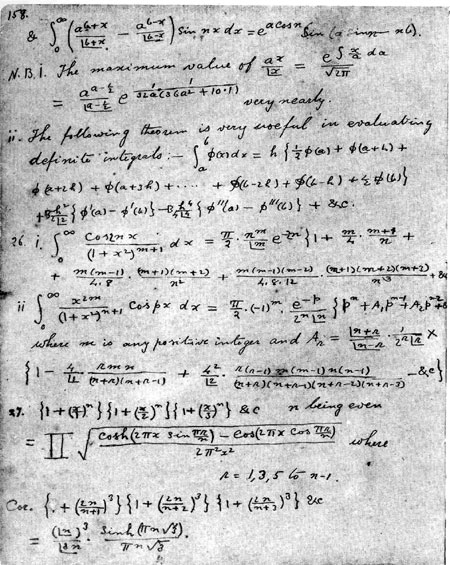 158.
& ∫₀^∞ (a^{b+x}/|b+x − a^{b−x}/|b−x) Sin nx dx = e^{a cos n} Sin (a sin n − nb).
N.B.1. The maximum value of a^x/|x = e^{∫ x/a da}/√2π
= a^{a−½}/|a−½ e^{1/(32a(36a²+10·1))} very nearly.
ii. The following theorem is very useful in evaluating
definite integrals:— ∫ₐᵇ φ(x)dx = h {½ φ(a) + φ(a+h) +
φ(a+2h) + φ(a+3h) + ..... + φ(b−2h) + φ(b−h) + ½ φ(b)}
+ B₂ h²/|2 {φ'(a) − φ'(b)} − B₄ h⁴/|4 {φ'''(a) − φ'''(b)} + &c.
26. i. ∫₀^∞ Cos 2nx/(1+x²)^{m+1} dx = π/2 · n^m/|m e^{−2n} {1 + m/4 · (m+1)/n +
+ m(m−1)/4·8 · (m+1)(m+2)/n² + m(m−1)(m−2)/4·8·12 · (m+1)(m+2)(m+3)/n³ + &c
ii ∫₀^∞ x^{2m}/(1+x²)^{n+1} Cos px dx = π/2 · (−1)^m · e^{−p}/2ⁿ|n {pⁿ + A₁pⁿ⁻¹ + A₂pⁿ⁻² + &c
where m is any positive integer and Aᵣ = |n+r/|n−r · 1/2ʳ|r ×
{1 − 4/|2 · rmn/(n+r)(n+r−1) + 4²/|2 · r(r−1)m(m−1)n(n−1)/(n+r)(n+r−1)(n+r−2)(n+r−3) − &c}
27. {1+(x/1)ⁿ}{1+(x/2)ⁿ}{1+(x/3)ⁿ} &c n being even
= ∏ √((Cosh(2πx Sin πr/n) − Cos(2πx Cos πr/n))/2π²x²) where
r = 1, 3, 5 to n−1.
Cor. {1 + (2n/(n+1))³}{1 + (2n/(n+2))³}{1 + (2n/(n+3))³} &c
= (|n)³/|3n · Sinh(πn√3)/πn√3.